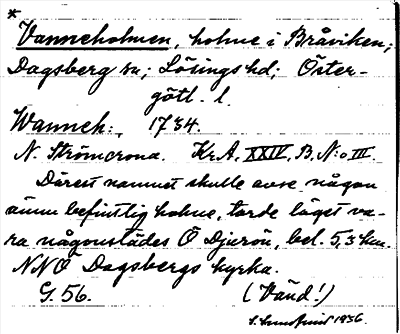 *
Vanneholmen, holme i Bråviken;
Dagsberg sn; Lösings hd; Öster-
götl. l.
Wanneh:, 1734.
N. Strömcrona. Kr.A, XXIV, B, N:o III.
Därest namnet skulle avse någon
ännu befintlig holme, torde läget va-
ra någonstädes Ö Djurön, bel. 5,3 km.
NNO Dagsbergs kyrka.
G. 56. (Vänd!)
1936.